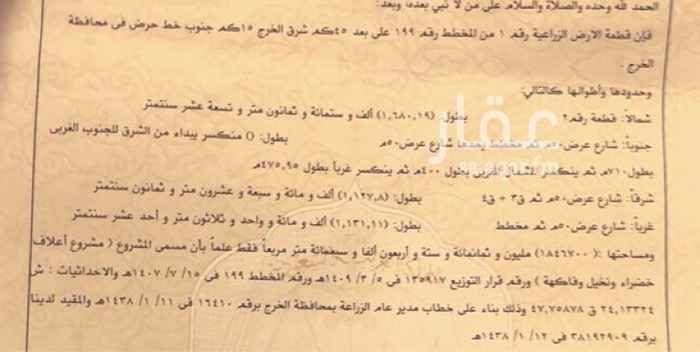 الحمد لله وحده والصلاة والسلام على من لا نبي بعده، وبعد:
فإن قطعة الارض الزراعية رقم ١ من المخطط رقم ١٩٩ على بعد ٤٥كم شرق الخرج ١٥كم جنوب خط حرض فى محافظة
الخرج .
وحدودها وأطوالها كالتالي:
شمالا: قطعة رقم٢ بطول: (١,٦٨٠,١٩) ألف و ستمائة و ثمانون متر و تسعة عشر سنتمتر
جنوباً: شارع عرض٥٠م ثم مخطط بحدها شارع عرض٥٠م بطول: () منكسر يبداء من الشرق للجنوب الغربى
بطول٧١٠م ثم ينكسر للشمال الغربى بطول ٤٠٠م ثم ينكسر غرباً بطول ٤٧٥,٩٥م
شرقاً: شارع عرض٥٠م ثم ق٣ + ق٤ بطول: (١,١٢٧,٨) ألف و مائة و سبعة و عشرون متر و ثمانون سنتمتر
غرباً: شارع عرض٥٠م ثم مخطط بطول: (١,١٣١,١١) ألف و مائة و واحد و ثلاثون متر و أحد عشر سنتمتر
ومساحتها :( ١٨٤٦٧٠٠) مليون و ثمانمائة و ستة و أربعون ألفا و سبعمائة متر مربعاً فقط علماً بأن مسمى المشروع ( مشروع أعلاف
خضراء ونخيل وفاكهة ) ورقم قرار التوزيع ١٣٥٩١٧ فى ٥/ ٣/ ١٤٠٩هـ ورقم المخطط ١٩٩ فى ١٥/ ٧/ ١٤٠٧هـ والاحداثيات : ش
٢٤,١٣٣٢٤ ق ٤٧,٧٥٨٧٨ وذلك بناء على خطاب مدير عام الزراعة بمحافظة الخرج برقم ١٦٤١٠ فى ١١/ ١/ ١٤٣٨هـ والمقيد لدينا
برقم ٣٨١٩٢٩٠٩ فى ١٢/ ١/ ١٤٣٨هـ
عقار
sa.aqar.fm